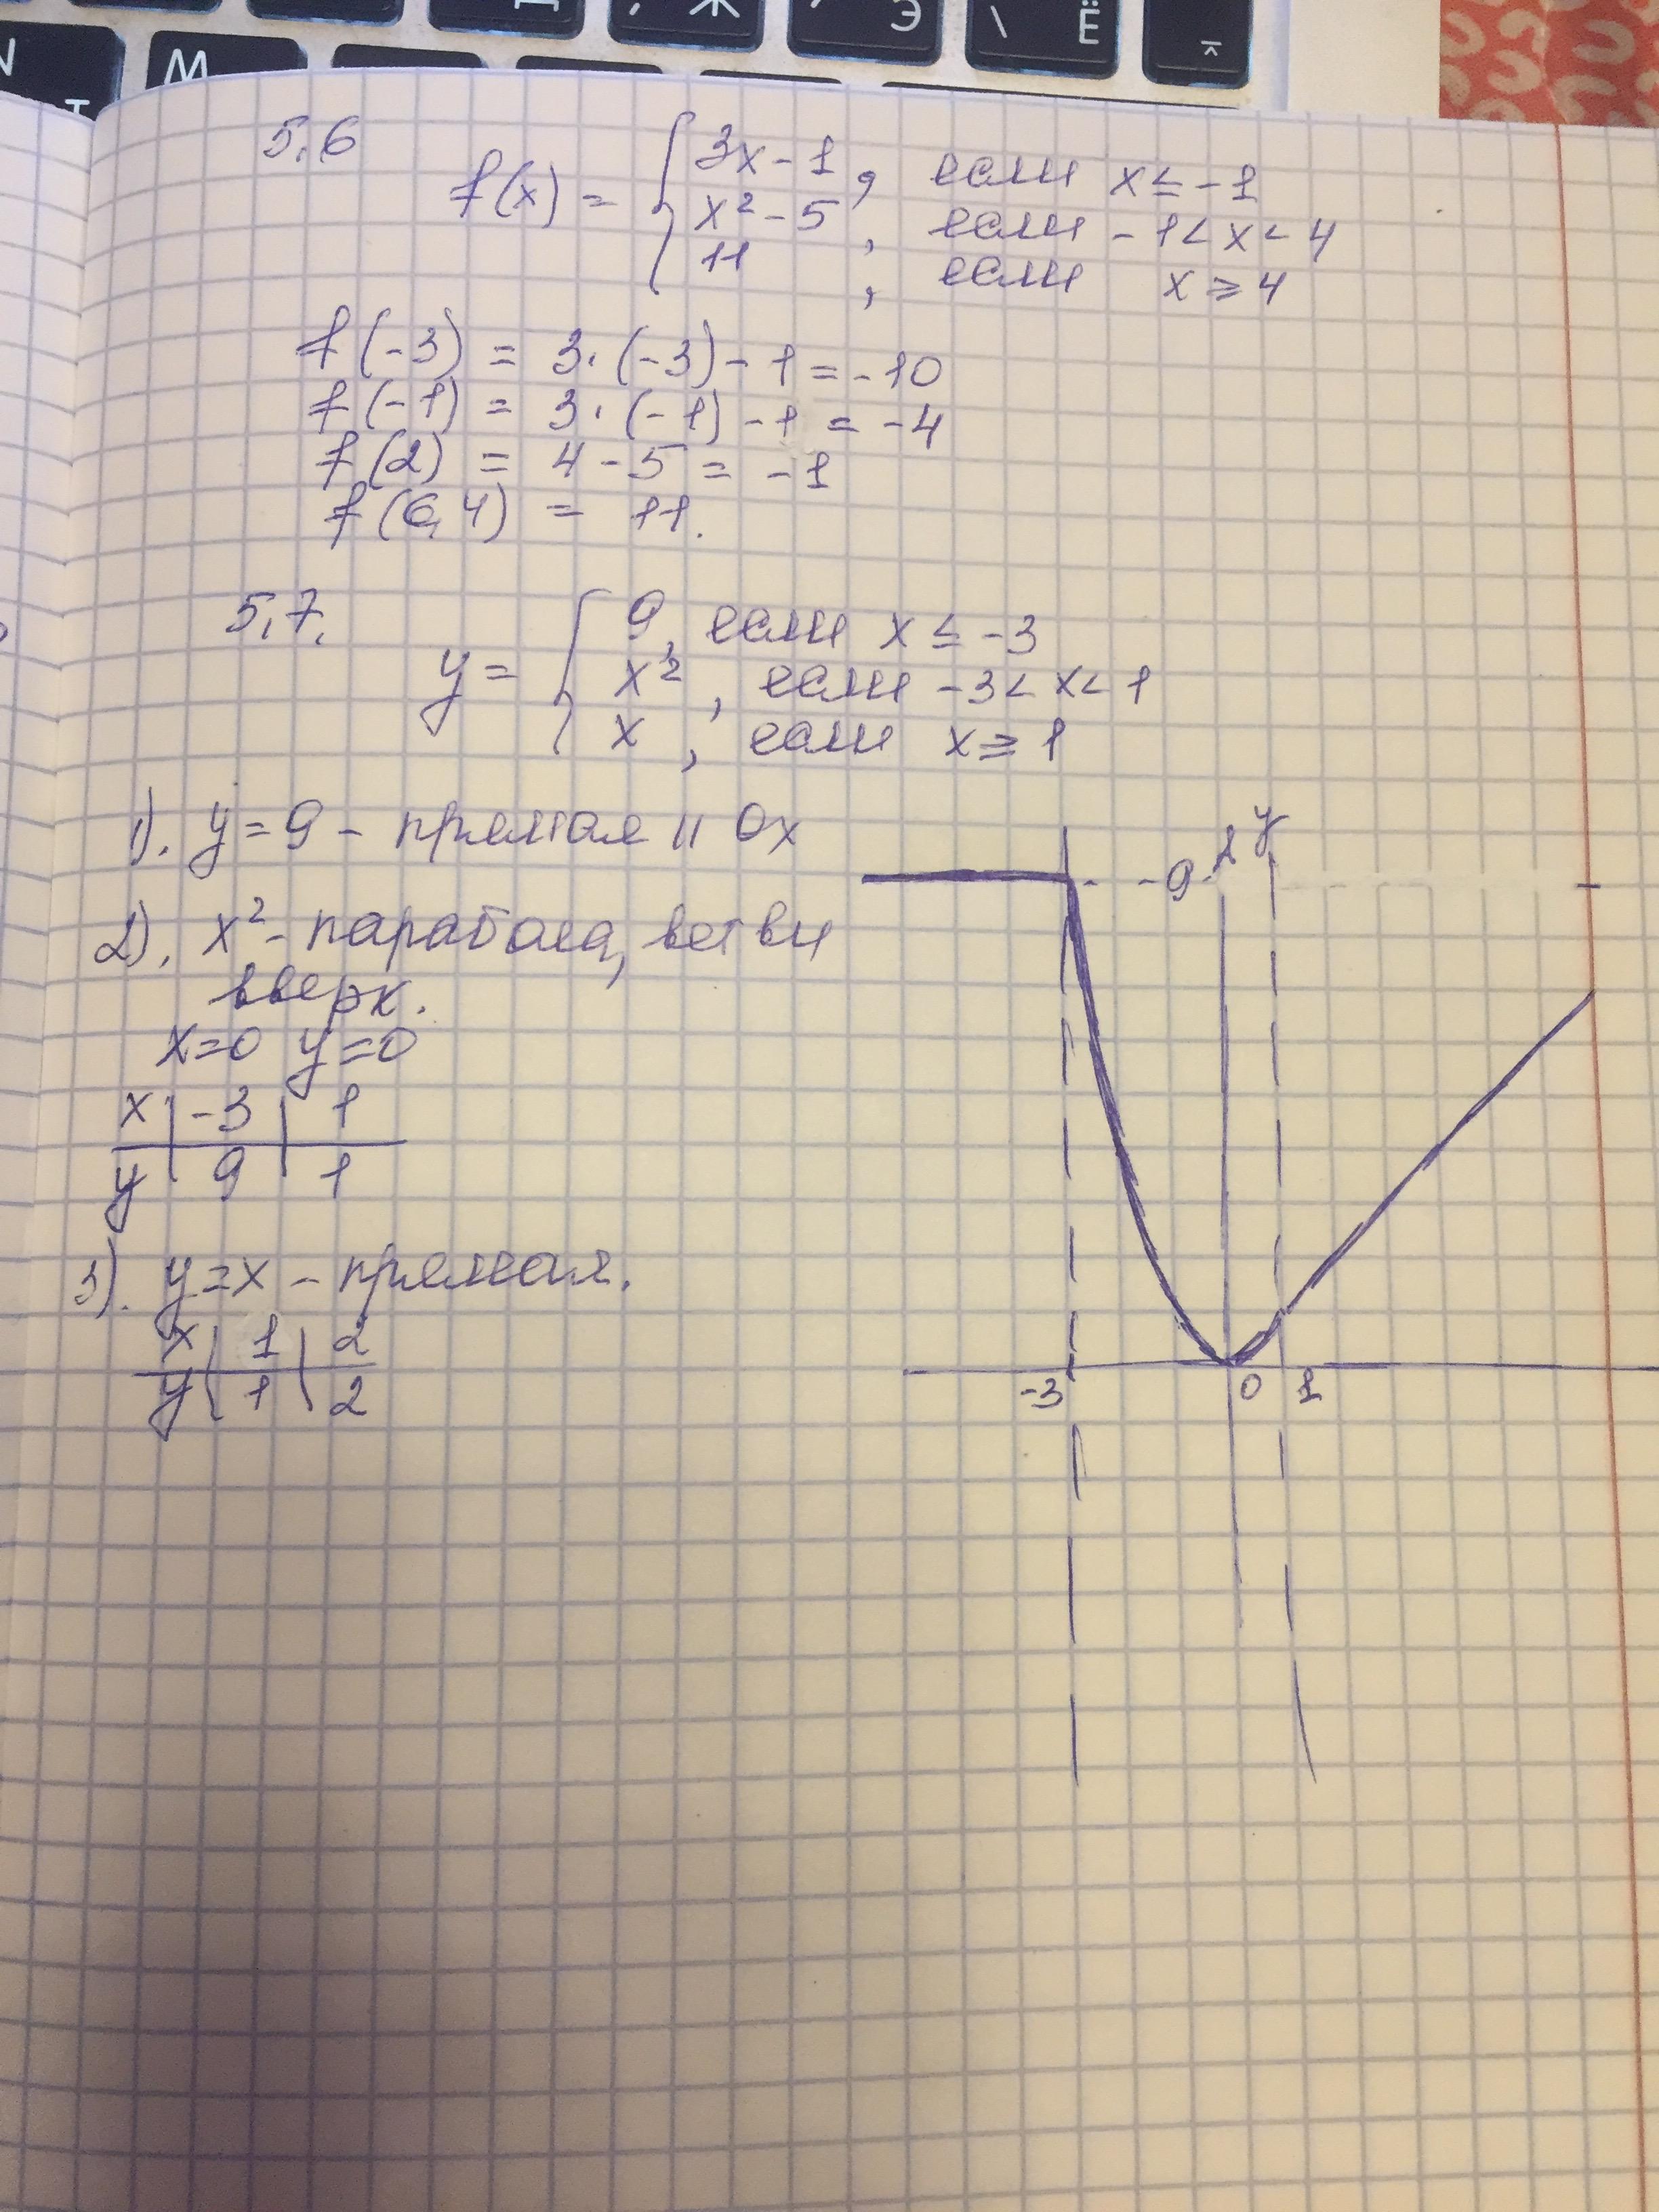 Д Ж Э \ Ё
М
5.6
f(x) = { 3x - 1, если x ≤ -1
x² - 5, если -1 < x < 4
11, если x ≥ 4
f(-3) = 3·(-3) - 1 = -10
f(-1) = 3·(-1) - 1 = -4
f(2) = 4 - 5 = -1
f(6,4) = 11.
5.7.
y = { 9, если x ≤ -3
x², если -3 < x < 1
x, если x ≥ 1
1). y = 9 - прямая || Ox
2). x² - парабола, ветви
вверх.
x=0 y=0
x | -3 | 1
y | 9 | 1
3). y=x - прямая.
x | 1 | 2
y | 1 | 2
y
9
-3 0 1